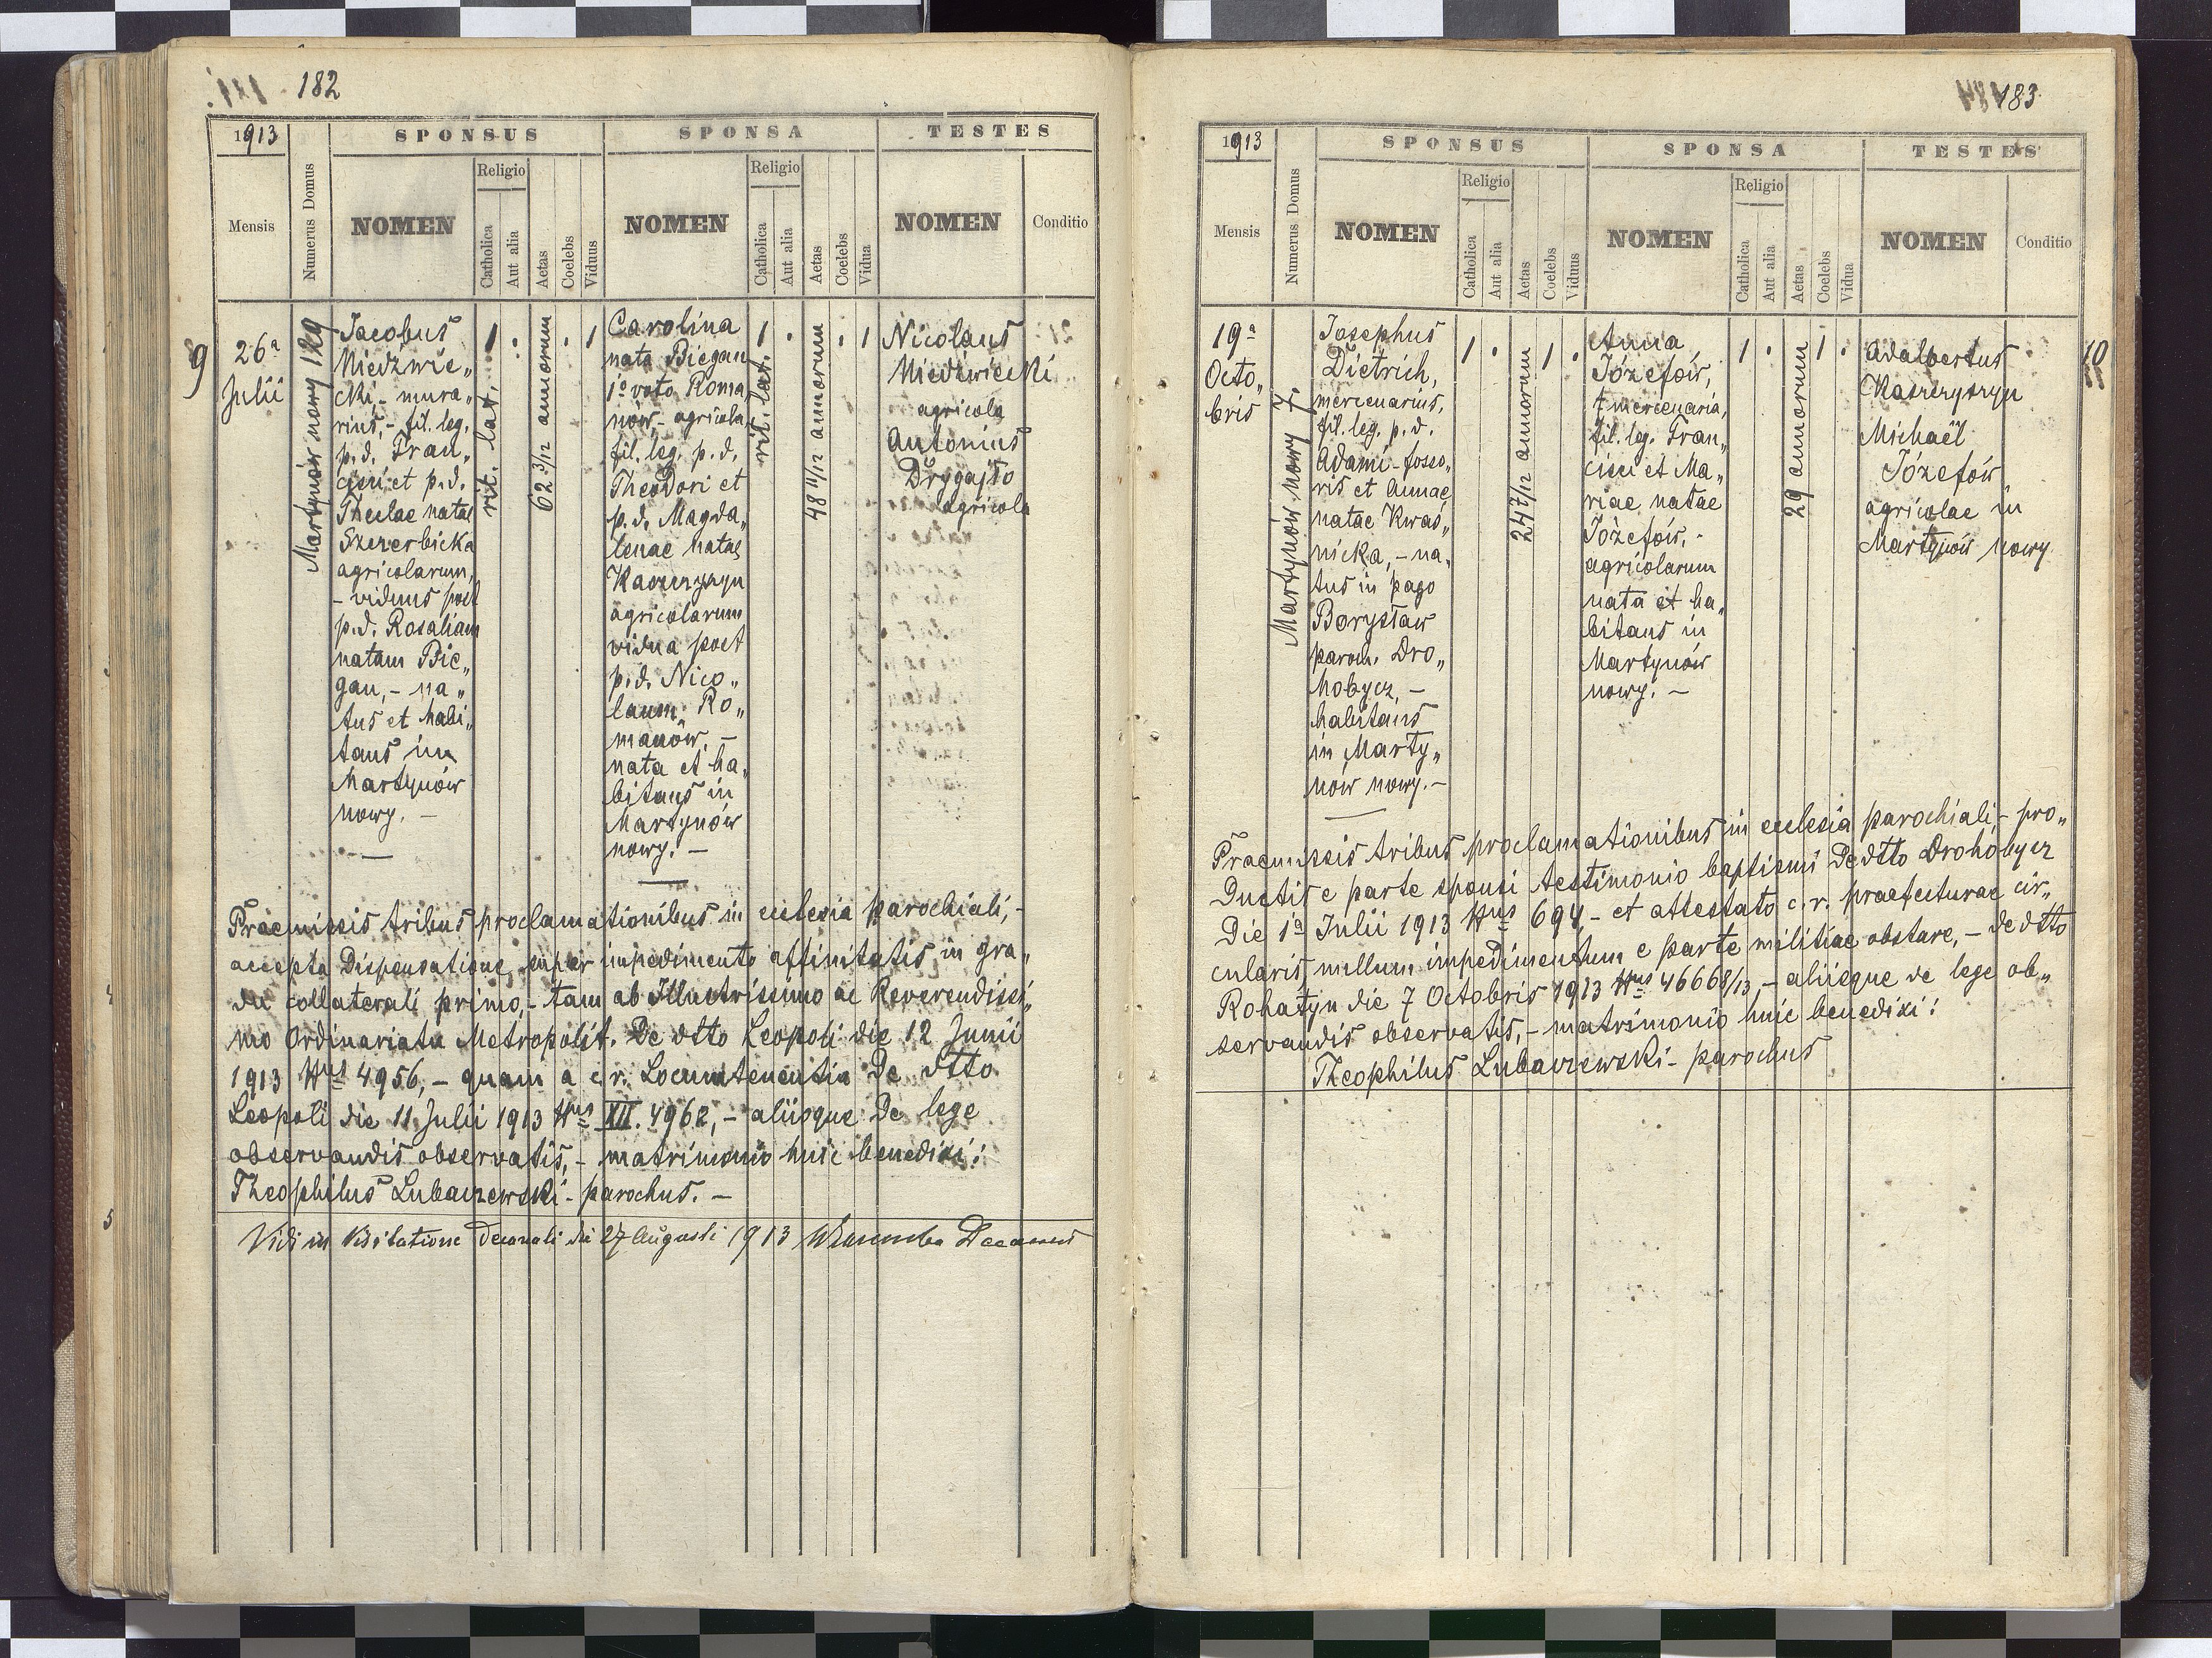 182
1913
SPONSUS
SPONSA
TESTES
Mensis
Numerus Domus
NOMEN
Religio
Catholica
Aut alia
Aetas
Coelebs
Viduus
NOMEN
Religio
Catholica
Aut alia
Aetas
Coelebs
Vidua
NOMEN
Conditio
9
26a
Julii
Martynów nowy 129
Jacobus
Niedźwie„
cki, - mura„
rius, - fil. leg.
p.d. Fran„
cisci et p.d.
Theclae natae
Szczerbicka
agricolarum,
- viduus post
p.d. Rosaliam
natam Bie„
gan, - na„
tus et habi„
tans in
Martynów
nowy. -
1 .
rit. lat.
62 3/12 annorum
. 1
Carolina
nata Biegan
1o voto Roma„
nów, - agricola,
fil. leg. p.d.
Theodori et
p.d. Magda„
lenae natae
Kaszczyszyn
agricolarum
vidua post
p.d. Nico„
laum Ro„
manów, -
nata et ha„
bitans in
Martynów
nowy. -
1 .
rit. lat.
48 11/12 annorum
. 1
Nicolaus
Niedźwiecki
agricola
Antonius
Drygajło
agricola
Praemissis tribus proclamationibus in ecclesia parochiali, -
accepta dispensatione super impedimento affinitatis in gra„
du collaterali primo, - tam ab Illustrissimo ac Reverendissi„
mo Ordinariatu Metropolit. de dtto Leopoli die 12 Junii
1913 Nus 4956, - quam a c.r. Locumtenentia de dtto
Leopoli die 11 Julii 1913 Nus XII. 4962, - aliisque de lege
observandis observatis, - matrimonio huic benedixi!
Theophilus Lubaczewski - parochus. -
Vidi in Visitatione decanali die 27 Augusti 1913 Decanus
183
1913
SPONSUS
SPONSA
TESTES
Mensis
Numerus Domus
NOMEN
Religio
Catholica
Aut alia
Aetas
Coelebs
Viduus
NOMEN
Religio
Catholica
Aut alia
Aetas
Coelebs
Vidua
NOMEN
Conditio
10
19a
Octo„
bris
Martynów nowy 7.
Josephus
Dietrich,
mercenarius,
fil. leg. p.d.
Adami - fosso„
ris et Annae
natae Kwaś„
nicka, - na„
tus in pago
Borysław
paroch. Dro„
hobycz, -
habitans
in Marty„
nów nowy. -
1 .
24 7/12 annorum
1 .
Anna
Józefów,
mercenaria,
fil. leg. Fran„
cisci et Ma„
riae natae
Józefów, -
agricolarum
nata et ha„
bitans in
Martynów
nowy. -
1 .
29 annorum
1 .
Adalbertus
Kaszczyszyn
Michaël
Józefów
agricolae in
Martynów nowy
Praemissis tribus proclamationibus in ecclesia parochiali, - pro„
ductis e parte sponsi testimonio baptismi de dtto Drohobycz
die 1a Julii 1913 Nus 694, - et attestato c.r. praefecturae cir„
cularis nullum impedimentum e parte militiae obstare, - de dtto
Rohatyn die 7 Octobris 1913 Nus 46668/13 - aliisque de lege ob„
servandis observatis, - matrimonio huic benedixi!
Theophilus Lubaczewski - parochus